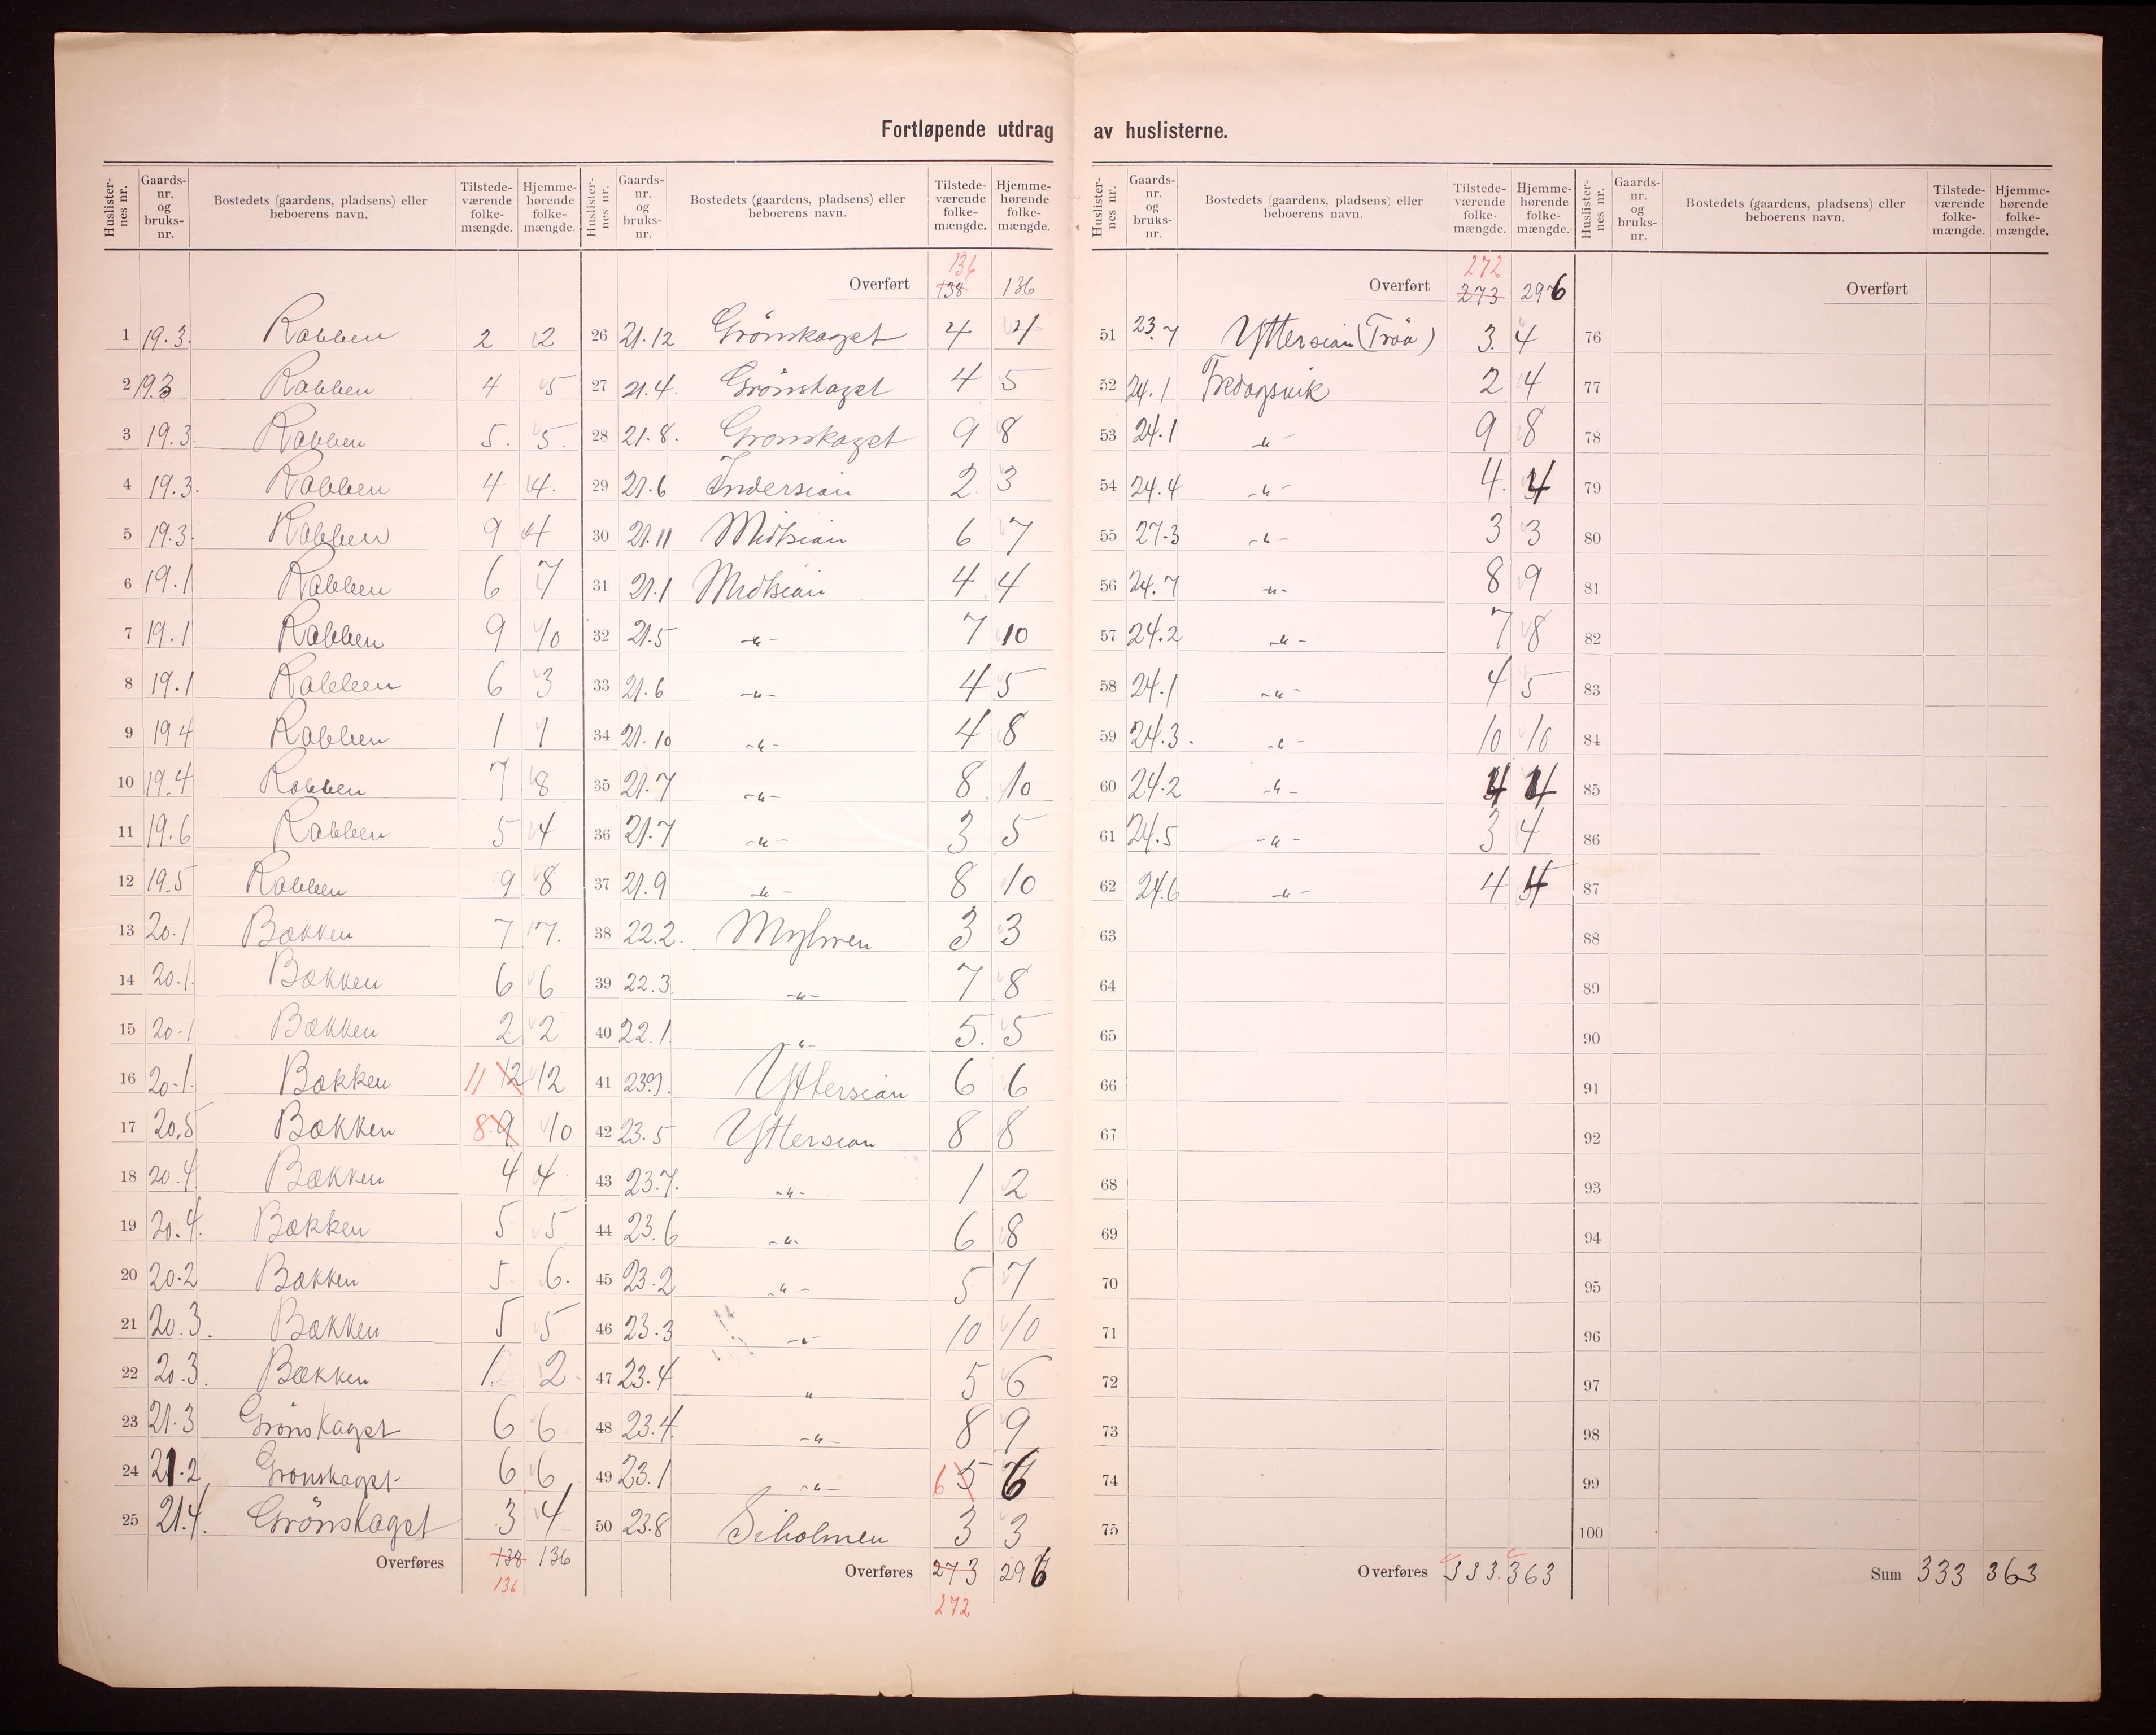 Fortløpende utdrag av huslisterne.
Huslister-nes nr. | Gaards-nr. og bruks-nr. | Bostedets (gaardens, pladsens) eller beboerens navn. | Tilstede-værende folke-mængde. | Hjemme-hørende folke-mængde.
1 19.3. Rabben 2 2
2 19.3 Rabben 4 5
3 19.3. Rabben 5. 5.
4 19.3. Rabben 4 4.
5 19.3. Rabben 9 4
6 19.1 Rabben 6 7
7 19.1 Rabben 9 10
8 19.1 Rabben 6 3
9 19 4 Rabben 1 1
10 19.4 Rabben 7 8
11 19.6 Rabben 5 4
12 19.5 Rabben 9 8
13 20.1 Bækken 7 7.
14 20.1. Bækken 6 6
15 20.1 Bækken 2 2
16 20.1. Bækken 11 12 12
17 20.5 Bækken 8 9 10
18 20.4 Bækken 4 4
19 20.4. Bækken 5 5
20 20.2 Bækken 5 6.
21 20.3. Bækken 5 5
22 20.3. Bækken 1 2
23 21.3 Grönskaget 6 6
24 21.2 Gronskaget 6 6
25 21.4. Grönskaget 3 4
Overføres 138 136
136
Huslister-nes nr. | Gaards-nr. og bruks-nr. | Bostedets (gaardens, pladsens) eller beboerens navn. | Tilstede-værende folke-mængde. | Hjemme-hørende folke-mængde.
136
Overført 138 136
26 21.12 Grönskaget 4 4
27 21.4. Grönskaget 4 5
28 21.8. Gronskaget 9 8
29 21.6 Indersian 2 3
30 21.11 Midtsian 6 7
31 21.1 Midtsian 4 4
32 21.5 -"- 7 10
33 21.6 -"- 4 5
34 21.10 -"- 4 8
35 21.7 -"- 8 10
36 21.7 -"- 3 5
37 21.9 -"- 8 10
38 22.2. 3 3
39 22.3. -"- 7 8
40 22.1. " 5. 5
41 Yttersian 6 6
42 23.5 Yttersian 8 8
43 23.7. -"- 1 2
44 23.6 -"- 6 8
45 23.2 -"- 5 7
46 23.3 -"- 10 10
47 23.4 " 5 6
48 23.4. -"- 8 9
49 23.1 -"- 6 5 6
50 23.8 Siholmen 3 3
Overføres 273 296
272
Huslister-nes nr. | Gaards-nr. og bruks-nr. | Bostedets (gaardens, pladsens) eller beboerens navn. | Tilstede-værende folke-mængde. | Hjemme-hørende folke-mængde.
272
Overført 273 296
51 23.7 Yttersian (Tröa) 3. 4
52 24.1 Fredagsvik 2 4
53 24.1 -"- 9 8
54 24.4 -"- 4. 4
55 27.3 -"- 3 3
56 24.7 -"- 8 9
57 24.2 -"- 7 8
58 24.1 -"- 4 5
59 24.3. -"- 10 10
60 24.2 -"- 4 4
61 24.5 -"- 3 4
62 24.6 -"- 4 4
63
64
65
66
67
68
69
70
71
72
73
74
75
Overføres 333. 363
Huslister-nes nr. | Gaards-nr. og bruks-nr. | Bostedets (gaardens, pladsens) eller beboerens navn. | Tilstede-værende folke-mængde. | Hjemme-hørende folke-mængde.
Overført
76
77
78
79
80
81
82
83
84
85
86
87
88
89
90
91
92
93
94
95
96
97
98
99
100
Sum 333 363